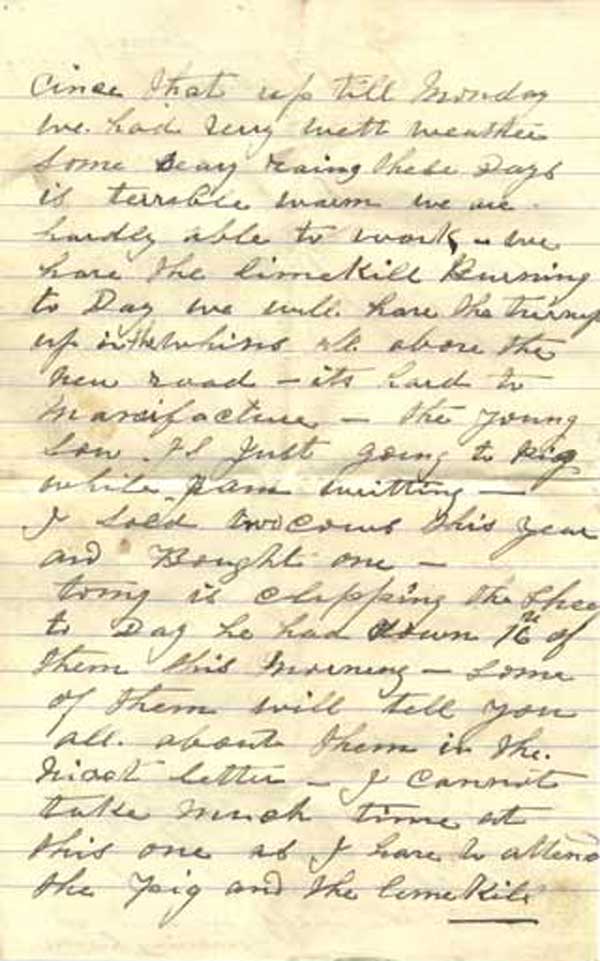 Cince that up till Monday
we had very wett weather
some heavy raing these Days
is terrible warm we are
hardly able to work - we
have the limeKill Burning
to Day we will have the turnips
up in the whins all above the
new road - its hard to
manifacture - the young
Sow IS Just going to pig
while I am writting -
I sold two cows this year
and Bought one -
tomy is clipping the Shee
to Day he had down 16 of
them this Morning - Some
of them will tell you
all about them in the
Nixt letter - I Cannot
take much time at
this one as I have to attend
the pig and the limeKill